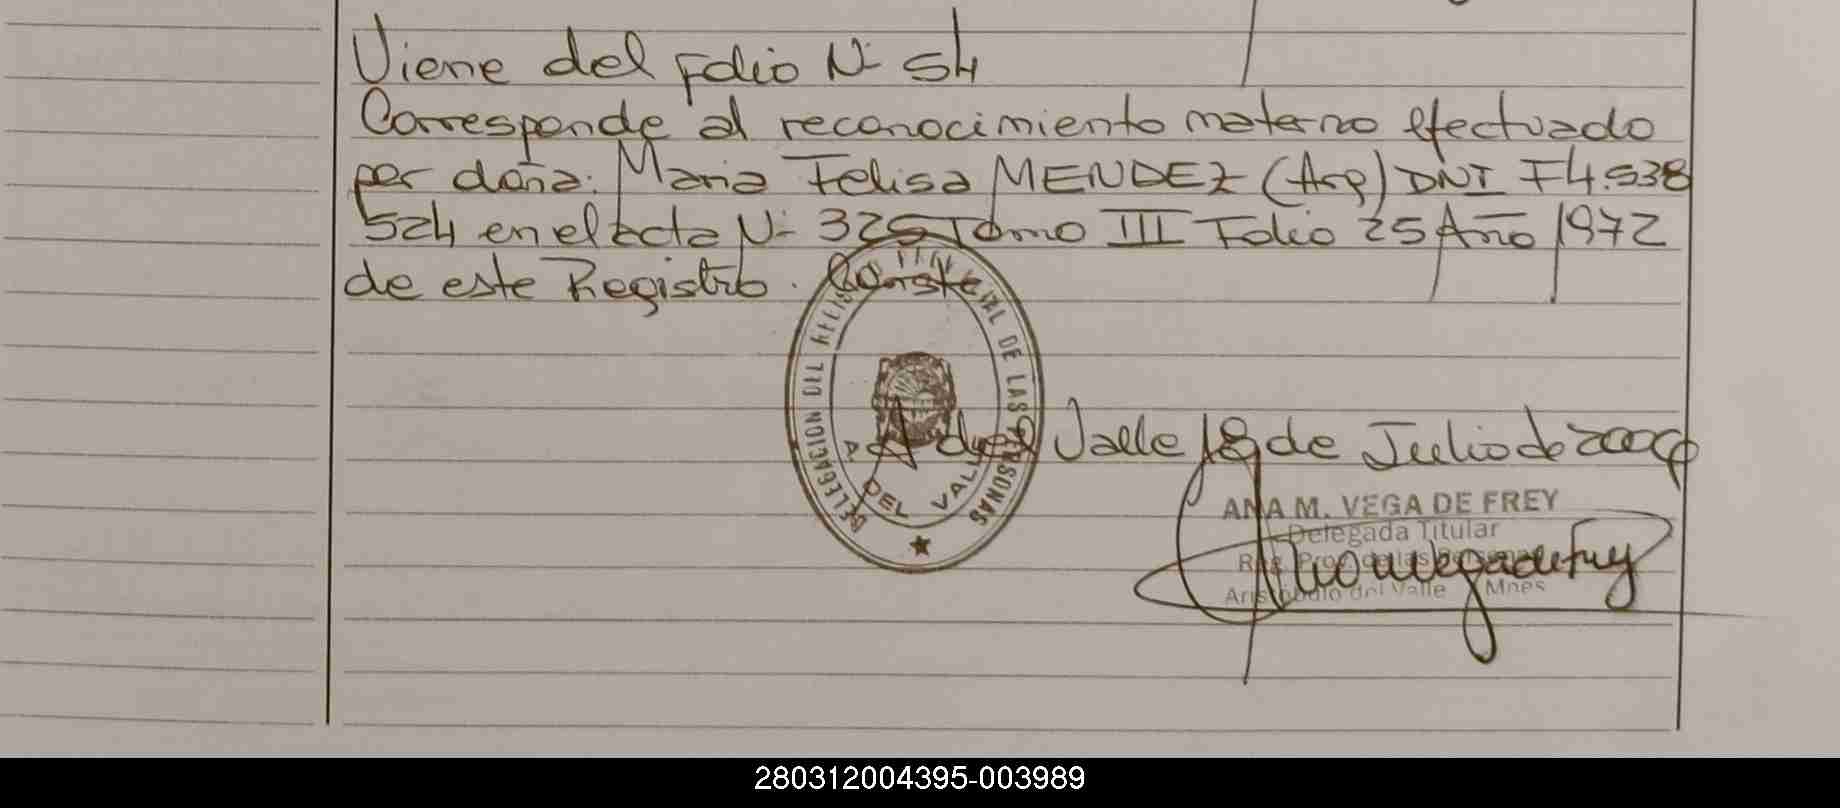 Viene del Folio Nº 54
Corresponde al reconocimiento materno efectuado
por doña: Maria Felisa MENDEZ (Arg) DNI F4.538
524 en el acta Nº 325 Tomo III Folio 25 Año 1972
de este Registro. Conste
DELEGACION DEL REGISTRO PROVINCIAL DE LAS PERSONAS
A. DEL VALLE
A del Valle 18 de Julio de
ANA M. VEGA DE FREY
Delegada Titular
Reg. Prov. de las Personas
Aristóbulo del Valle Mnes
280312004395-003989